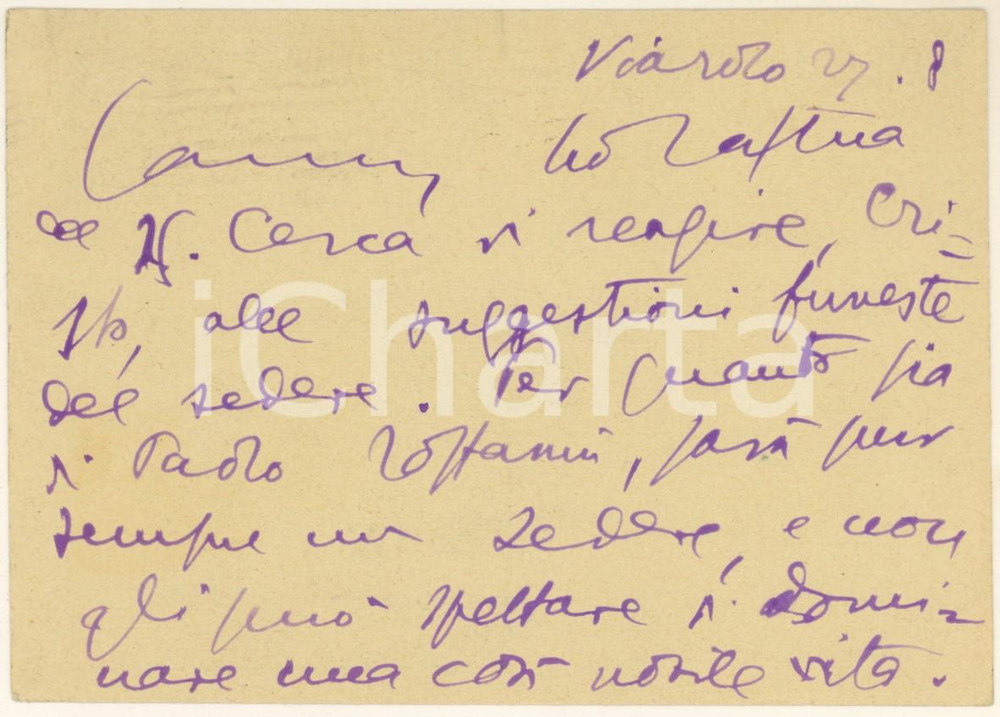 Viarolo 27. 8
Caro, ho la tua
del N. Cerca di reagire, Cri-
sto, alle suggestioni funeste
del sedere. Per quanto sia
di Paolo Toffanin, sarà pur
sempre un sedere, e non
gli può spettare di domi-
nare una così nobile vita.
iCharta